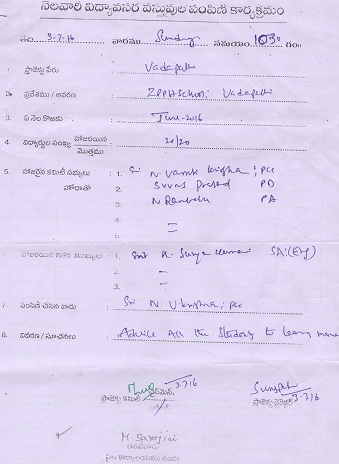 నెలవారి విద్యావసర వస్తువుల పంపిణి కార్యక్రమం
తేది 3-7-16 వారము Sunday సమయం 1030 గం॥
1. ప్రాజెక్టు పేరు : Vadapalli
2. ప్రదేశము / ఆవరణ : ZPPHSchool, Vadapalli
3. ఏ నెల కొరకు : June-2016
4. విద్యార్థుల సంఖ్య హాజరయిన / మొత్తము : 20/20
5. హాజరైన కమిటీ సభ్యులు : 1. Sri N. Vamsi Krishna, PCC
హోదాతో 2. SVVNS Prasad PD
3. N Rambabu PA
4. =
5.
6. హాజరయిన ఇతర ముఖ్యులు : 1. Smt K. Surya Kumari SA (Eng)
2. =
3. =
7. పంపిణి చేసిన వారు : Sri N. V. Krishna, PCC
8. వివరణ / సూచనలు : Advice All the Student to learn more
3.7.16
ప్రాజెక్టు కమిటీ ఛైర్మెన్. 3.7.16
M. Sarojini